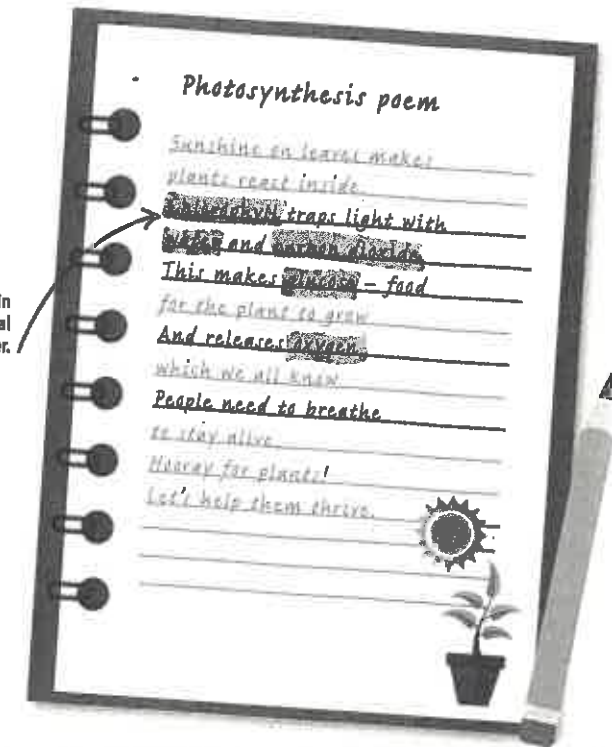 Photosynthesis poem
Sunshine on leaves makes
plants react inside.
Chlorophyll traps light with
water and carbon dioxide.
This makes glucose – food
for the plant to grow
And releases oxygen,
which we all know
People need to breathe
to stay alive.
Hooray for plants!
Let's help them thrive.
in
al
er.